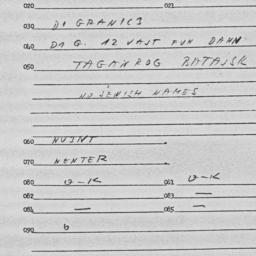 020 021
030 DI GRANICI
040 DI G. IZ VAST FUN DANN
050 TAGANROG BATAJSK
NO JEWISH NAMES
060 NUINT
070 NENTER
080 O-K 081 O-K
082 083 —
084 — 085 —
090 b